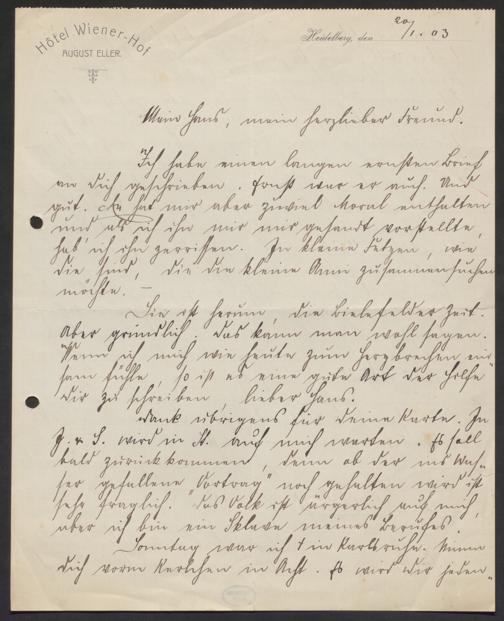 Hôtel Wiener-Hof
AUGUST ELLER.
Heidelberg, den 20/1. 03
Mein Hans, mein herzlieber Freund.
Ich habe einen langen ernsten Brief
an Dich geschrieben. Ernst war er auch. Und
gut. Er hat mir aber zuviel Moral enthalten
und als ich ihn mir nur gesandt vorstellte,
hab' ich ihn zerrissen. In kleine Fetzen, wie
die sind, die die kleine Anni zusammensuchen
möchte. –
Sie ist herum, die Bielefelder Zeit.
Aber gründlich. Das kann man wohl sagen.
Wenn ich mich wie heute zum Herzbrechen ein-
sam fühle, so ist es eine gute Art der Hilfe
Dir zu schreiben, lieber Hans.
Dank übrigens für Deine Karte. In
J. v. S. wird in St. auch mich warten. Es soll
bald zurückkommen, denn ob der ins Was-
ser gefallene "Vortrag" noch gehalten wird ist
sehr fraglich. "Das Volk ist ärgerlich auf mich,
aber ich bin ein Sklave meines Berufes.
Sonntag war ich in Karlsruhe. Nimm
Dich vorm Kerlchen in Acht. Es wird Dir jeden-